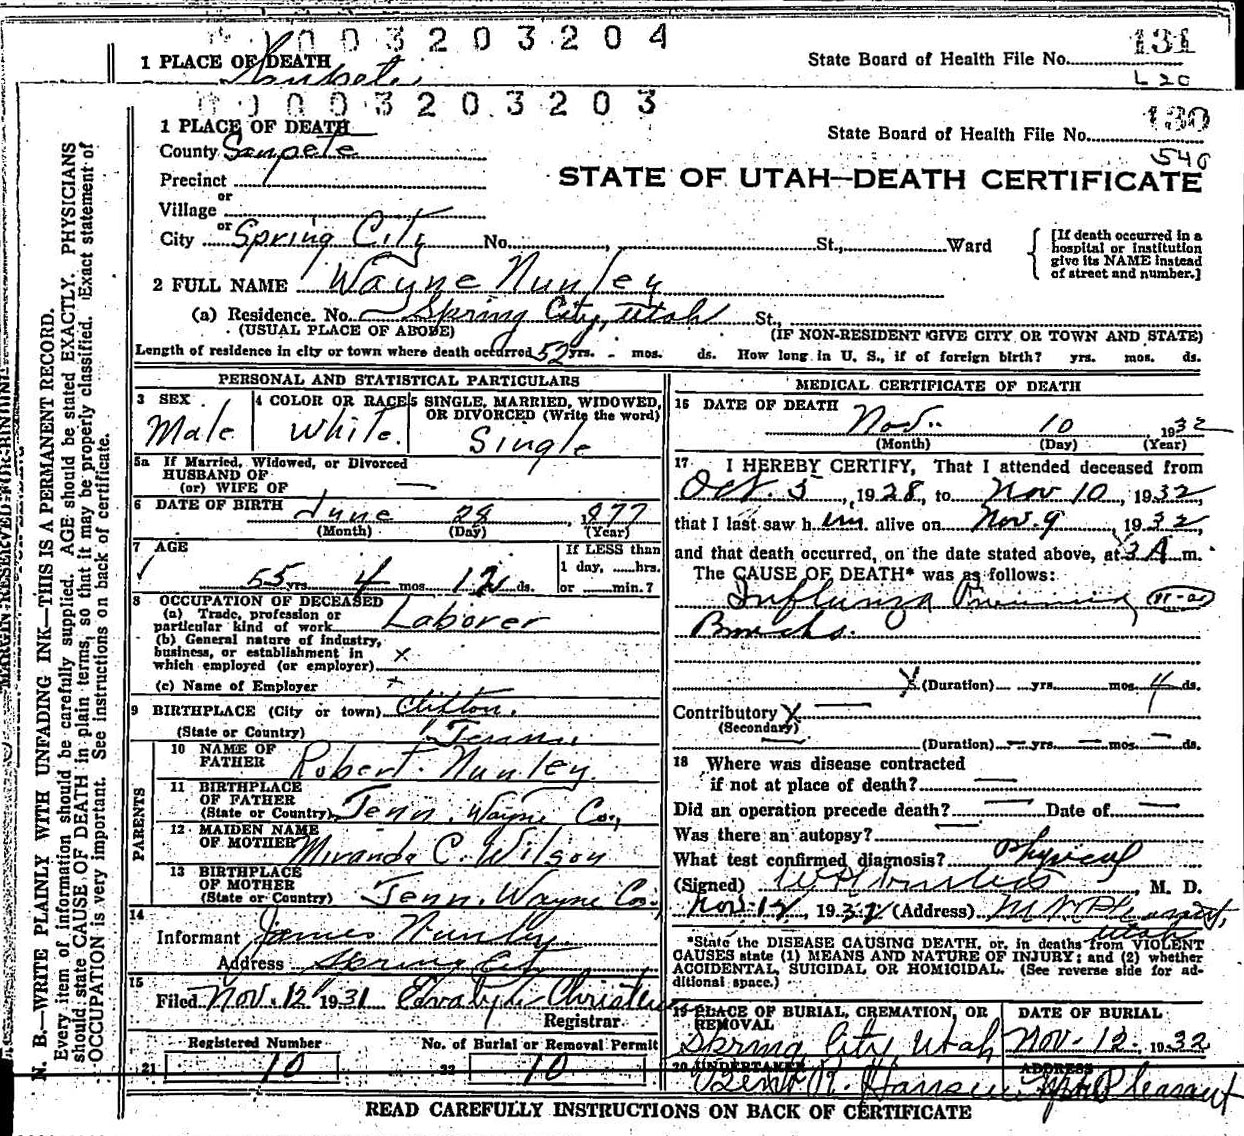 0003203204
131
1 PLACE OF DEATH
State Board of Health File No.
Sanpete
L 20
0003203203
130
1 PLACE OF DEATH
State Board of Health File No.
County Sanpete
540
Precinct
STATE OF UTAH—DEATH CERTIFICATE
or
Village
or
City Spring City No. , St., Ward
[If death occurred in a
hospital or institution
give its NAME instead
of street and number.]
2 FULL NAME Wayne Nunley
(a) Residence. No. Spring City, Utah St.,
(USUAL PLACE OF ABODE)
(IF NON-RESIDENT GIVE CITY OR TOWN AND STATE)
Length of residence in city or town where death occurred 52 yrs. - mos. ds. How long in U. S., if of foreign birth? yrs. mos. ds.
PERSONAL AND STATISTICAL PARTICULARS
3 SEX
Male
4 COLOR OR RACE
White.
5 SINGLE, MARRIED, WIDOWED,
OR DIVORCED (Write the word)
Single
5a If Married, Widowed, or Divorced
HUSBAND OF
(or) WIFE OF —
6 DATE OF BIRTH June 28, 1877
(Month) (Day) (Year)
7 AGE
55 yrs. 4 mos. 12 ds.
If LESS than
1 day, ......hrs.
or ......min.?
8 OCCUPATION OF DECEASED
(a) Trade, profession or
particular kind of work Laborer
(b) General nature of industry,
business, or establishment in
which employed (or employer) x
(c) Name of Employer
9 BIRTHPLACE (City or town) Clifton.
(State or Country)
PARENTS
10 NAME OF
FATHER Robert Nunley.
11 BIRTHPLACE
OF FATHER
(State or Country) Tenn. Wayne Co.,
12 MAIDEN NAME
OF MOTHER Miranda C. Wilson
13 BIRTHPLACE
OF MOTHER
(State or Country) Tenn. Wayne Co.,
14
Informant James Nunley
Address Spring City
15
Filed Nov. 12 1931
Registrar
Registered Number
No. of Burial or Removal Permit
21 10
22 10
MEDICAL CERTIFICATE OF DEATH
16 DATE OF DEATH
Nov. 10 1932
(Month) (Day) (Year)
17 I HEREBY CERTIFY, That I attended deceased from
Oct. 5, 1928, to Nov 10, 1932,
that I last saw him alive on Nov. 9, 1932,
and that death occurred, on the date stated above, at 3 A m.
The CAUSE OF DEATH* was as follows:
Influnza
Broncho.
x (Duration) yrs. mos. 4 ds.
Contributory x —
(Secondary)
(Duration) — yrs. — mos. — ds.
18 Where was disease contracted
if not at place of death? —
Did an operation precede death? — Date of —
Was there an autopsy? —
What test confirmed diagnosis? Physical
(Signed) , M. D.
Nov. 12, 1932 (Address) Mt Pleasant,
Utah
*State the DISEASE CAUSING DEATH, or, in deaths from VIOLENT
CAUSES state (1) MEANS AND NATURE OF INJURY; and (2) whether
ACCIDENTAL, SUICIDAL OR HOMICIDAL. (See reverse side for ad-
ditional space.)
19 PLACE OF BURIAL, CREMATION, OR
REMOVAL
Spring City, Utah
DATE OF BURIAL
Nov. 12, 1932
20 UNDERTAKER
R. Hansen
ADDRESS
Mt Pleasant
READ CAREFULLY INSTRUCTIONS ON BACK OF CERTIFICATE
MARGIN RESERVED FOR BINDING
N. B.—WRITE PLAINLY WITH UNFADING INK—THIS IS A PERMANENT RECORD.
Every item of information should be carefully supplied. AGE should be stated EXACTLY. PHYSICIANS
should state CAUSE OF DEATH in plain terms, so that it may be properly classified. Exact statement of
OCCUPATION is very important. See instructions on back of certificate.